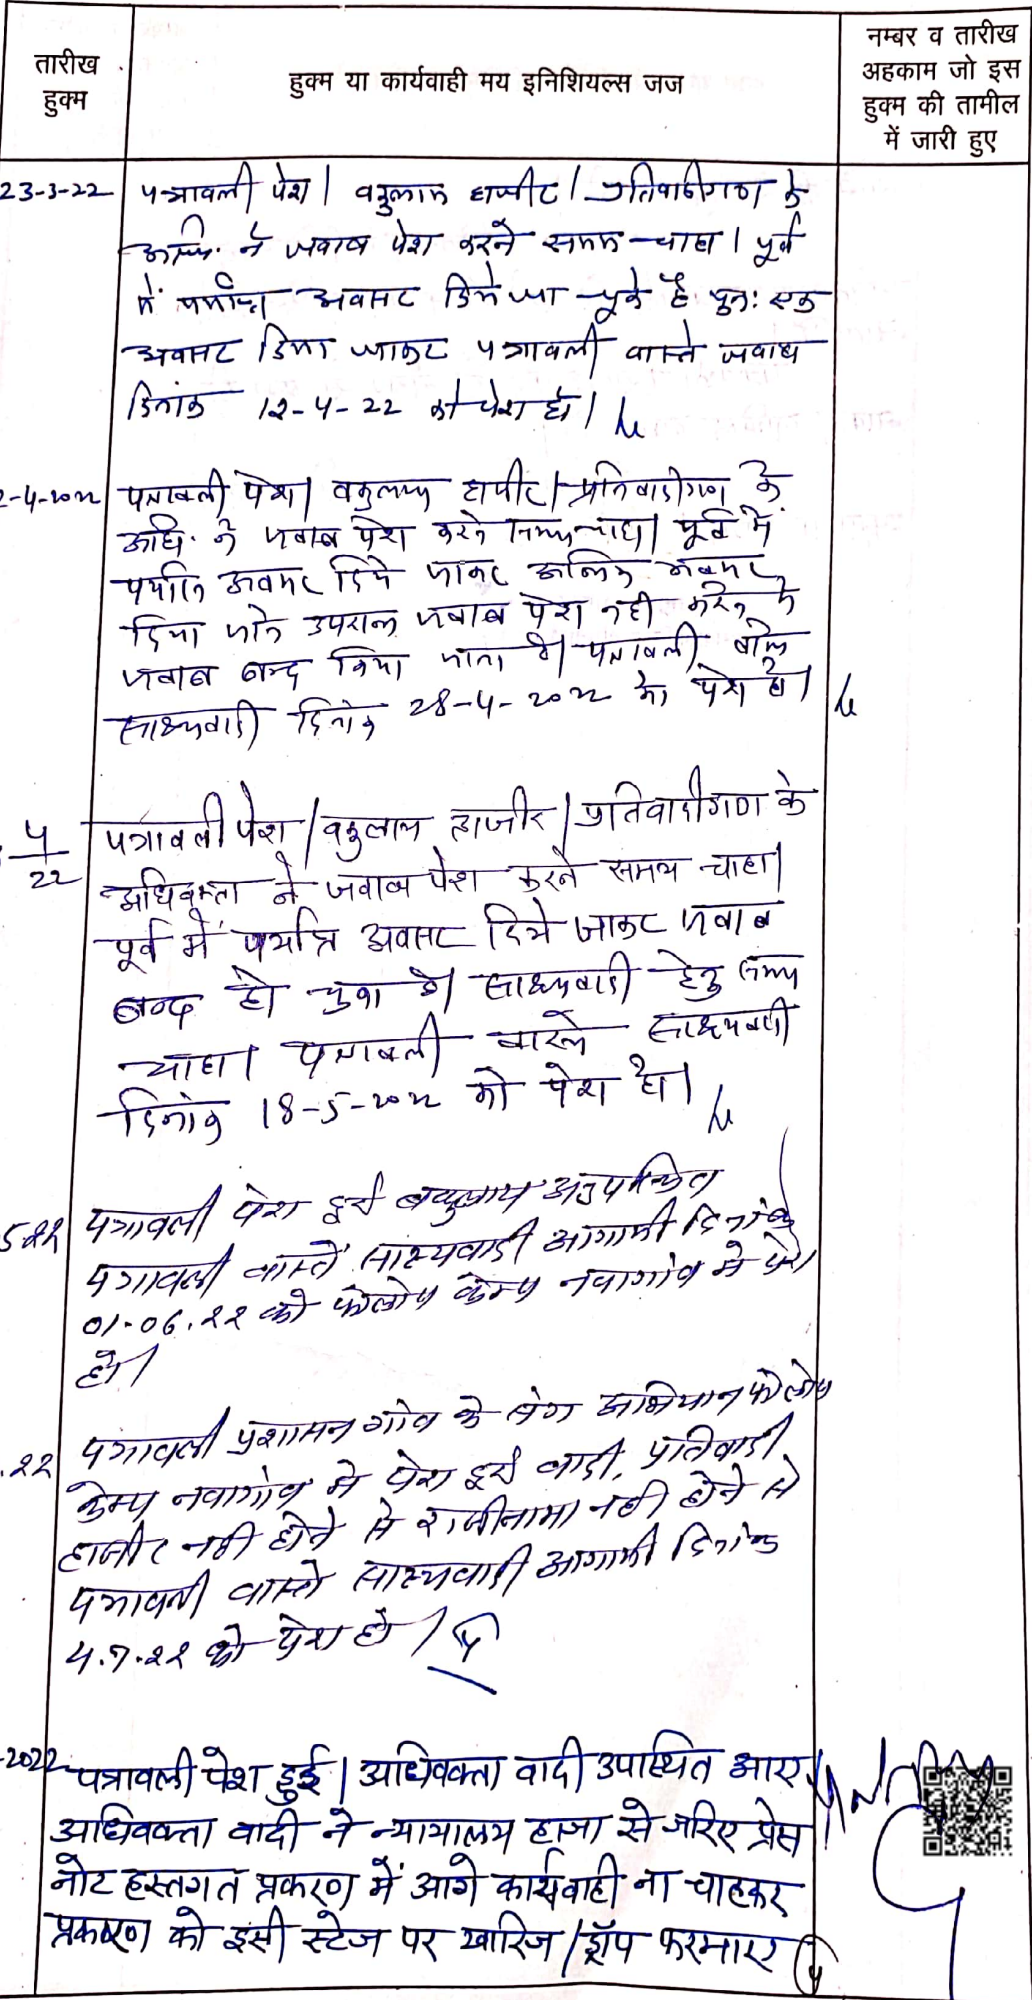 तारीख
हुक्म
हुक्म या कार्यवाही मय इनिशियल्स जज
नम्बर व तारीख
अहकाम जो इस
हुक्म की तामील
में जारी हुए
23-3-22 पत्रावली पेश। वकुलाय हाजीर। प्रतिवादीगण के
अधि. ने जवाब पेश करने समय चाहा। पूर्व
में पर्याप्त अवसर दिये जा चूके है पुन: एक
अवसर दिया जाकर पत्रावली वास्ते जवाब
दिनांक 12-4-22 को पेश हो।
2-4-2022 पत्रावली पेश। वकुलाय हाजीर। प्रतिवादीगण के
अधि. ने जवाब पेश करने समय चाहा। पूर्व में
पर्याप्त अवसर दिये जाकर अन्तिम अवसर
दिया जाने उपरान्त जवाब पेश नही करने से
जवाब बन्द किया जाता है। पत्रावली वास्ते
साक्ष्यवादी दिनांक 28-4-2022 को पेश हो।
4/22 पत्रावली पेश। वकुलाय हाजीर। प्रतिवादीगण के
अधिवक्ता ने जवाब पेश करने समय चाहा।
पूर्व में पर्याप्त अवसर दिये जाकर जवाब
बन्द हो चुका है। साक्ष्यवादी हेतु समय
चाहा। पत्रावली वास्ते साक्ष्यवादी
दिनांक 18-5-2022 को पेश हो।
5.22 पत्रावली पेश हुई वकुलाय अनुपस्थित
पत्रावली वास्ते साक्ष्यवादी आगामी दिनांक
01.06.22 को फोलोप केम्प नवागांव मे पेश
हो।
.22 पत्रावली प्रशासन गांव के संग अभियान फोलोप
केम्प नवागांव मे पेश हुई वादी, प्रतिवादी
हाजीर नही होने से राजीनामा नही होने से
पत्रावली वास्ते साक्ष्यवादी आगामी दिनांक
4.7.22 को पेश हो।
-2022 पत्रावली पेश हुई। अधिवक्ता वादी उपास्थित आए
अधिवक्ता वादी ने न्यायालय हाजा से जरिए प्रेस
नोट हस्तगत प्रकरण में आगे कार्यवाही ना चाहकर
प्रकरण को इसी स्टेज पर खारिज/ड्रॉप फरमाए